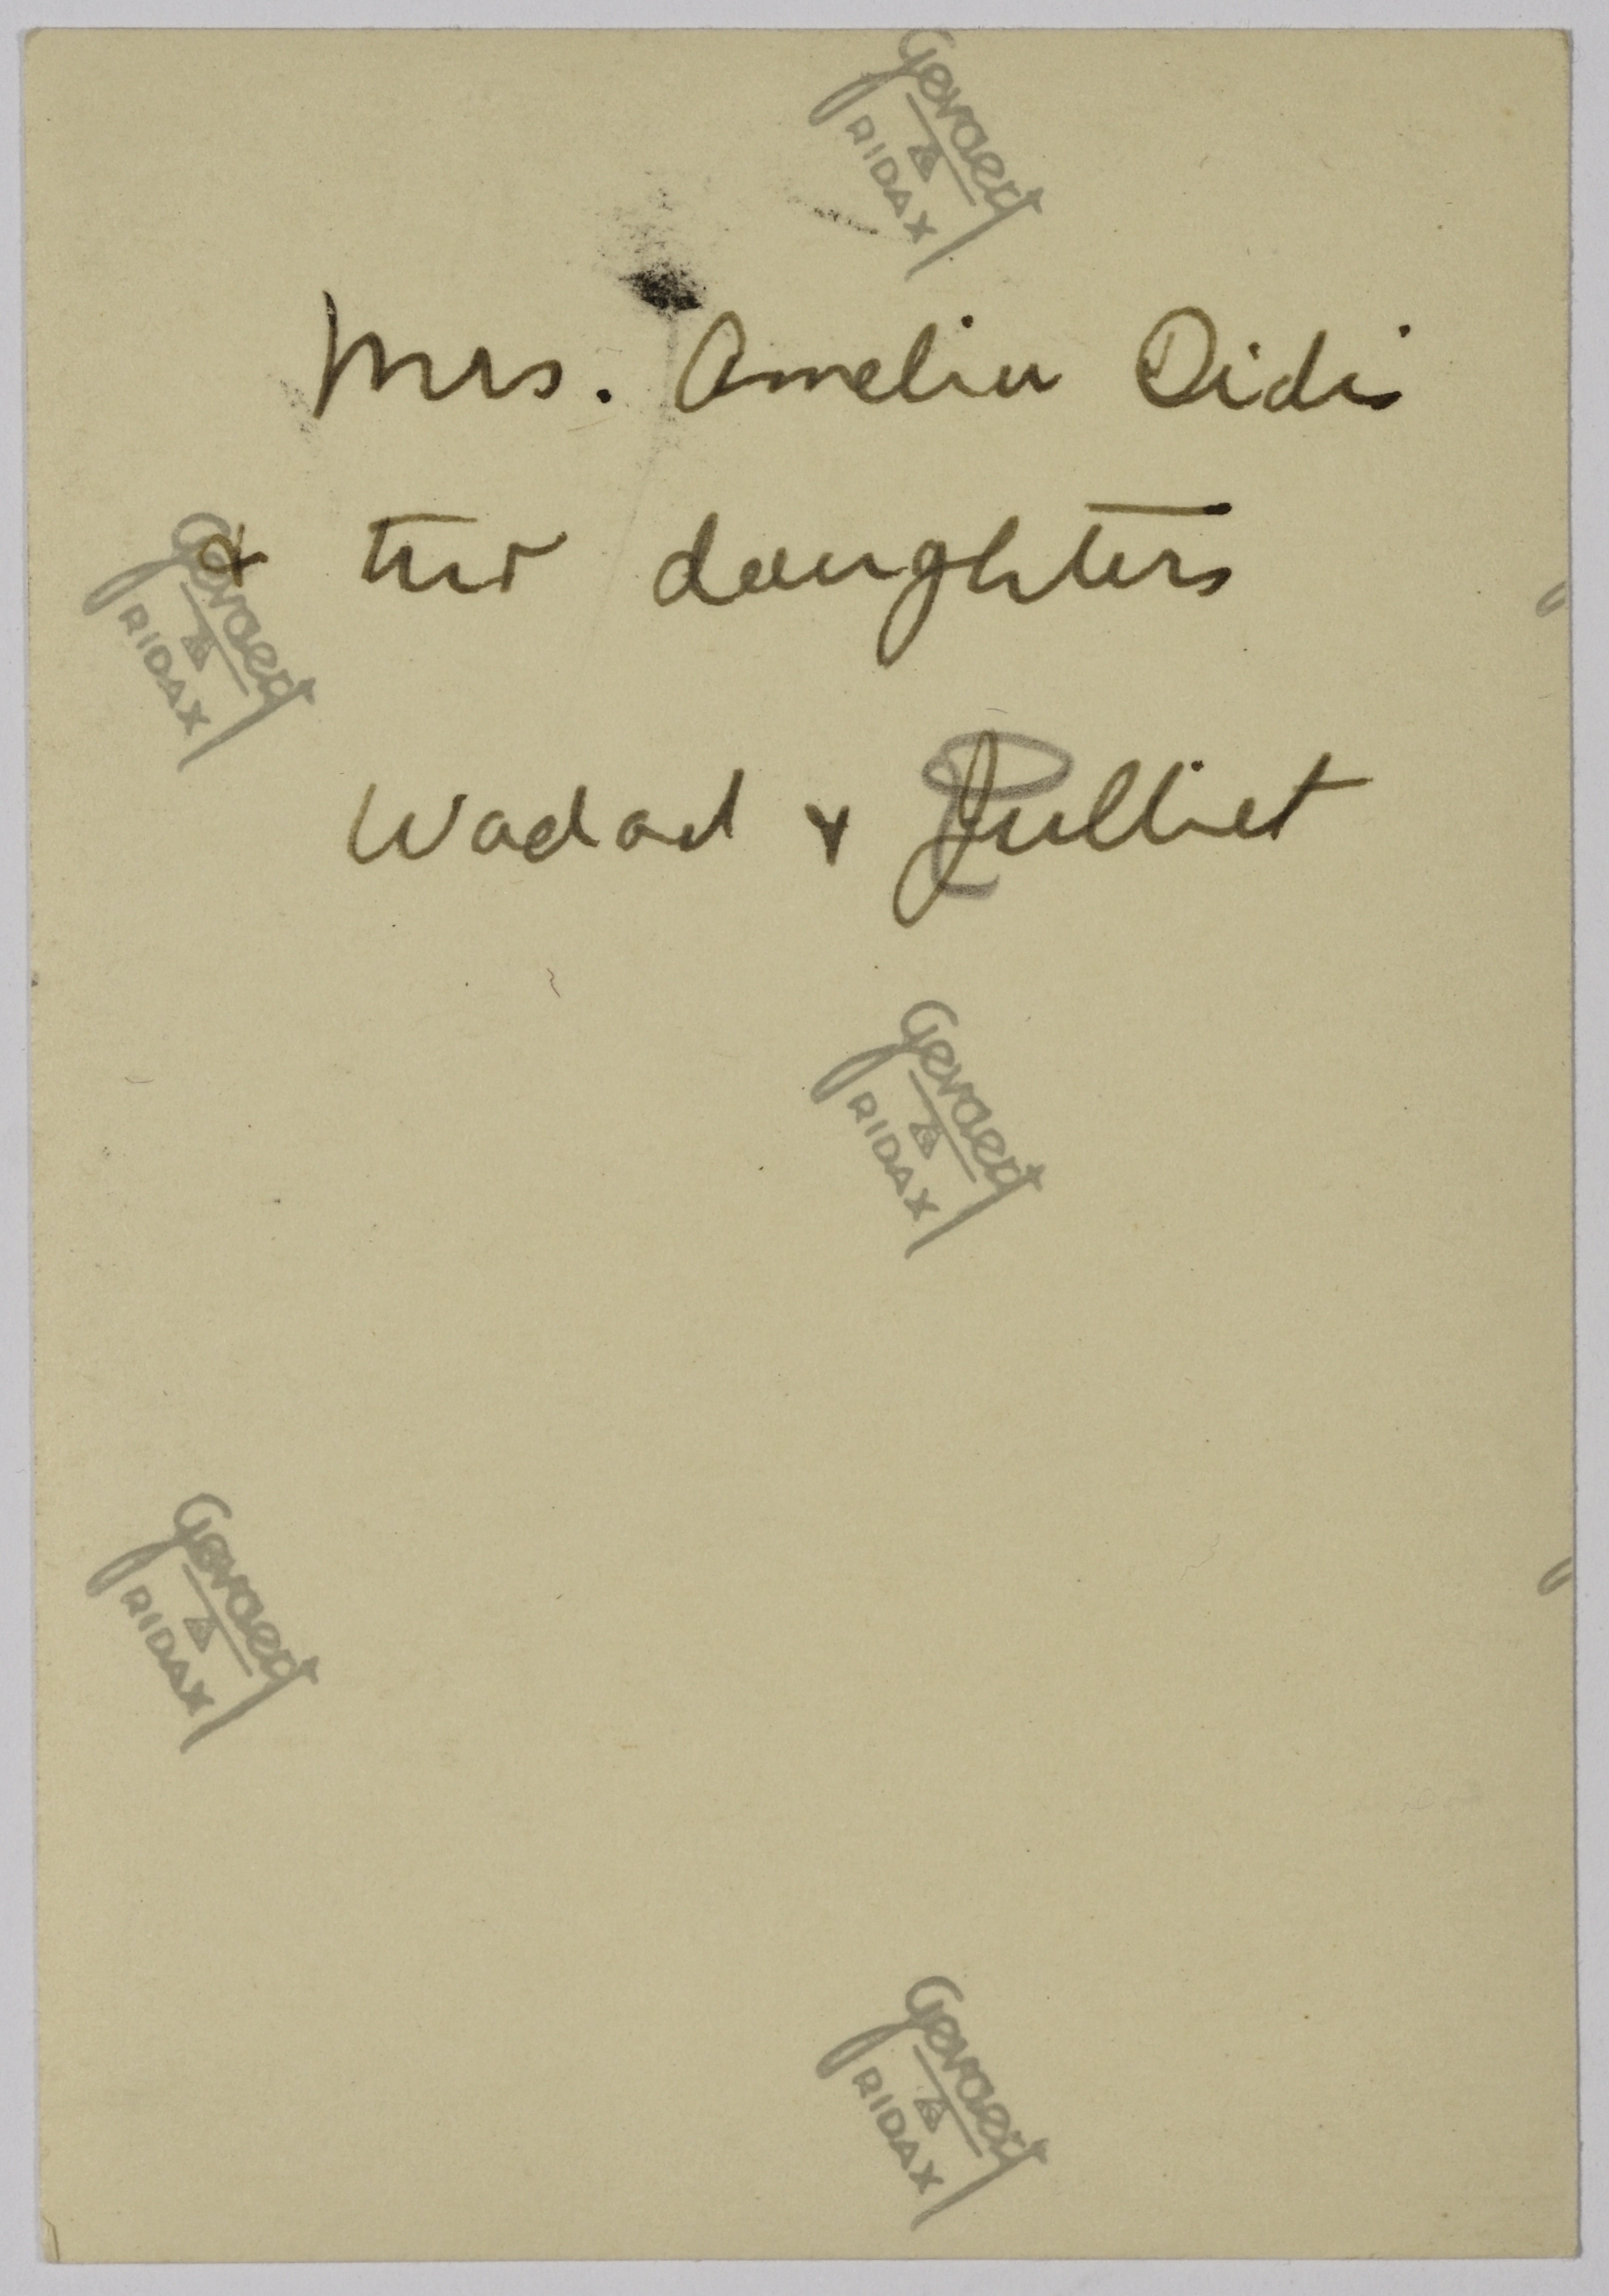 Gevaert
RIDAX
Mrs. Amelia Didi
& two daughters
Gevaert
RIDAX
Wadad & Julliet
Gevaert
RIDAX
Gevaert
RIDAX
Gevaert
RIDAX